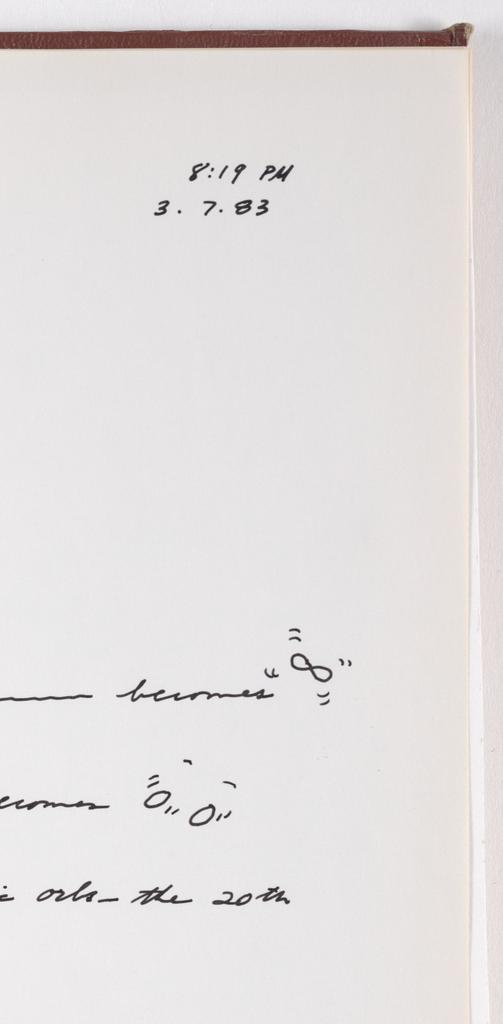 8:19 PM
3. 7. 83
becomes "∞"
ecomes O,, O,,
ic orbs — the 20th